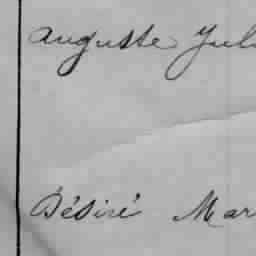 Auguste Jul
Désiré Mar